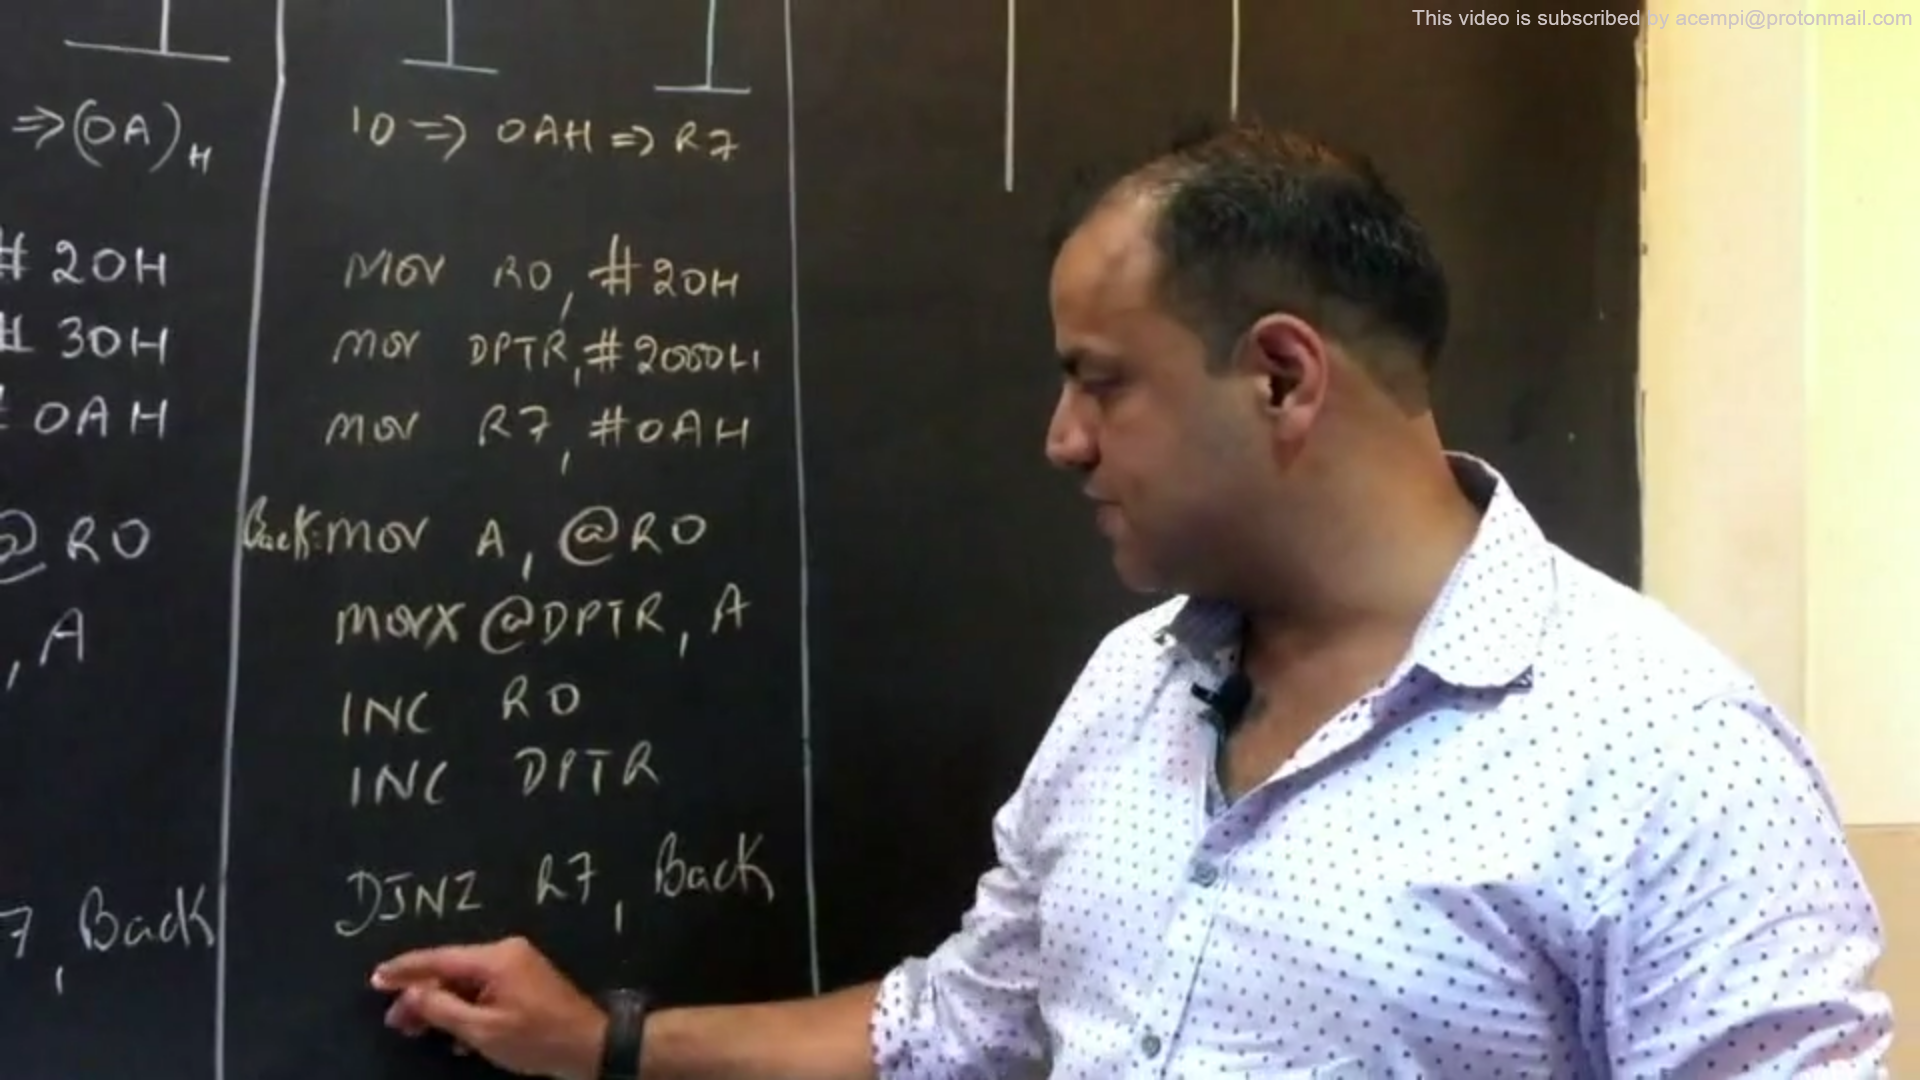 This video is subscribed by acempi@protonmail.com
⇒(0A)H
# 20H
# 30H
# 0AH
@ R0
, A
7, Back
10 ⇒ 0AH ⇒ R7
MOV R0, #20H
MOV DPTR, #2000H
MOV R7, #0AH
Back: MOV A, @R0
MOVX @DPTR, A
INC R0
INC DPTR
DJNZ R7, Back